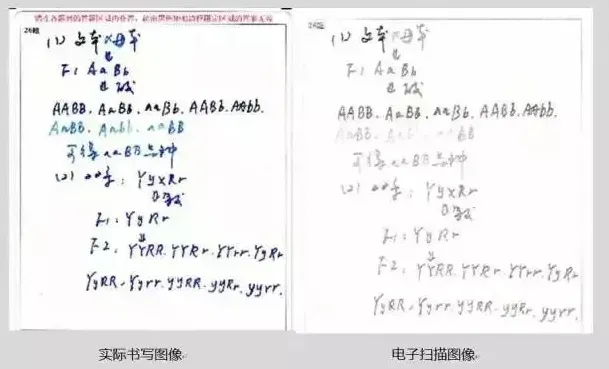 请在各题目的答题区域内作答,超出黑色矩形边框限定区域的答案无效
26题
(1) 父本×母本
↓
F1 AaBb
AABB. AaBB. aaBb. AABb. AAbb.
AaBB. Aabb. aaBB
可得aaBB品种
(2) 亲本: YyXRr
↓
F1: YyRr
↓
F2: YYRR. YYRr. YYrr. YyRr
YyRR. Yyrr. yyRR. yyRr. yyrr.
实际书写图像
26题
(1) 父本×母本
↓
F1 AaBb
AABB. AaBB. aaBb. AABb. AAbb.
AaBB. Aabb. aaBB
可得aaBB品种
(2) 亲本: YyXRr
F1: YyRr
↓
F2: YYRR. YYRr. YYrr. YyRr
YyRR. Yyrr. yyRR. yyRr. yyrr.
电子扫描图像